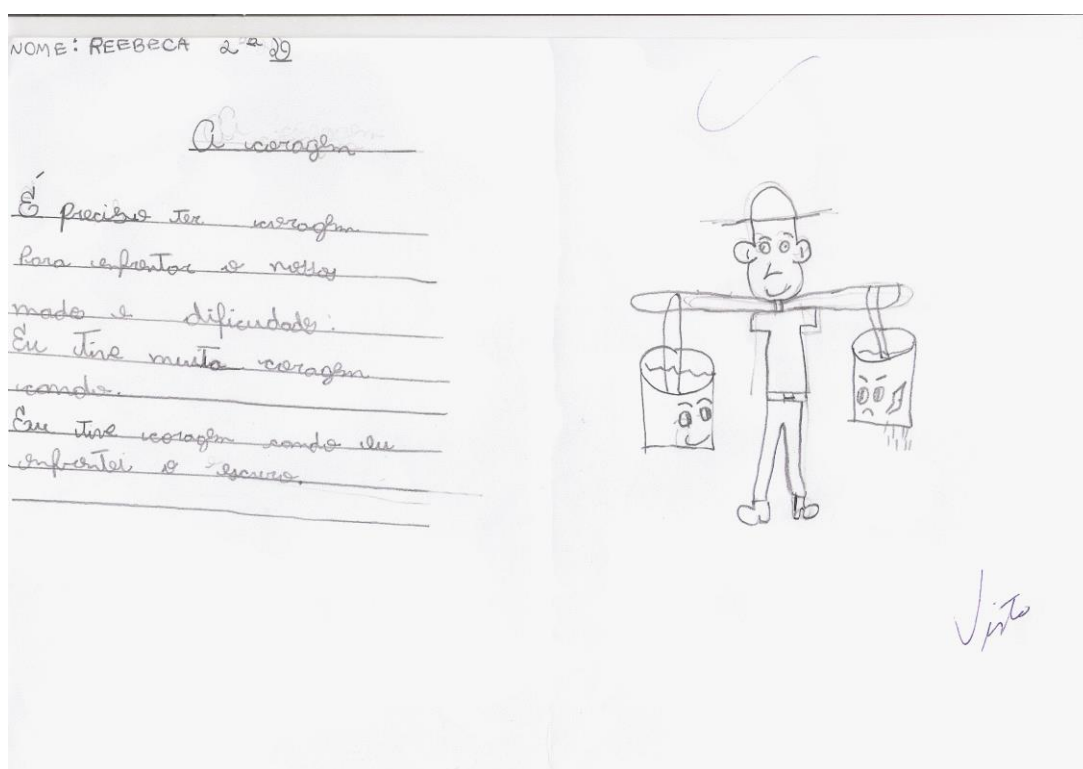 NOME: REEBECA 2ª 29
A coragem
É preciso ter coragem
Para enfrentar o nossos
mado e dificudade:
Eu tive muita coragem
cando.
Eu tive coragem cando eu
enfrentei o escuro.
Visto